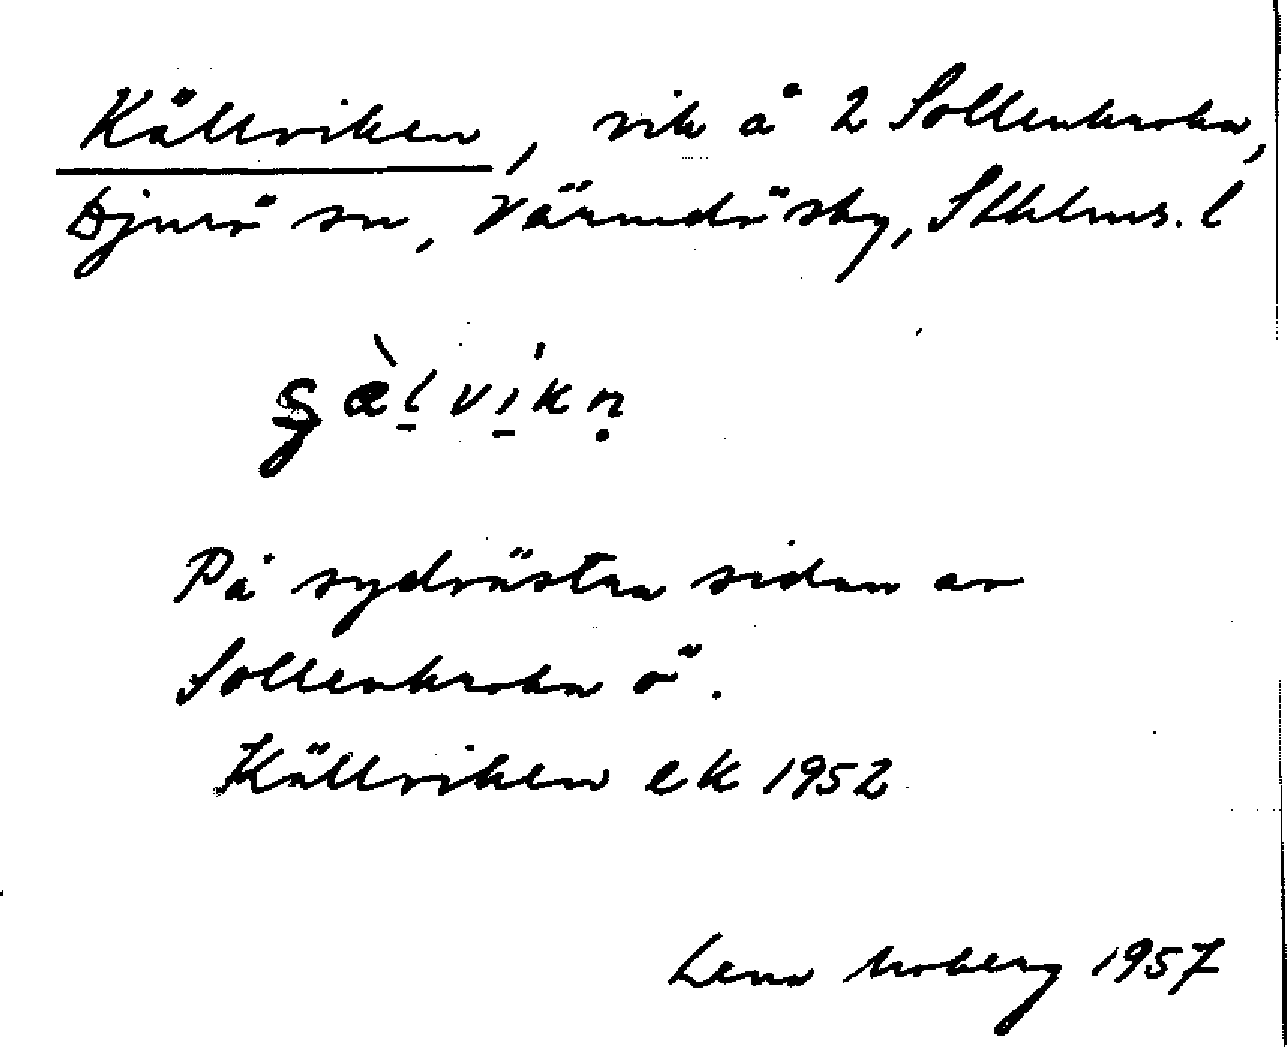 Källviken, vik å 2 Sollenkroka,
Djurö sn, Värmdö skg, Sthlms. l
På sydvästra sidan av
Sollenkroka ö.
Källviken ek 1952
Lena Moberg 1957